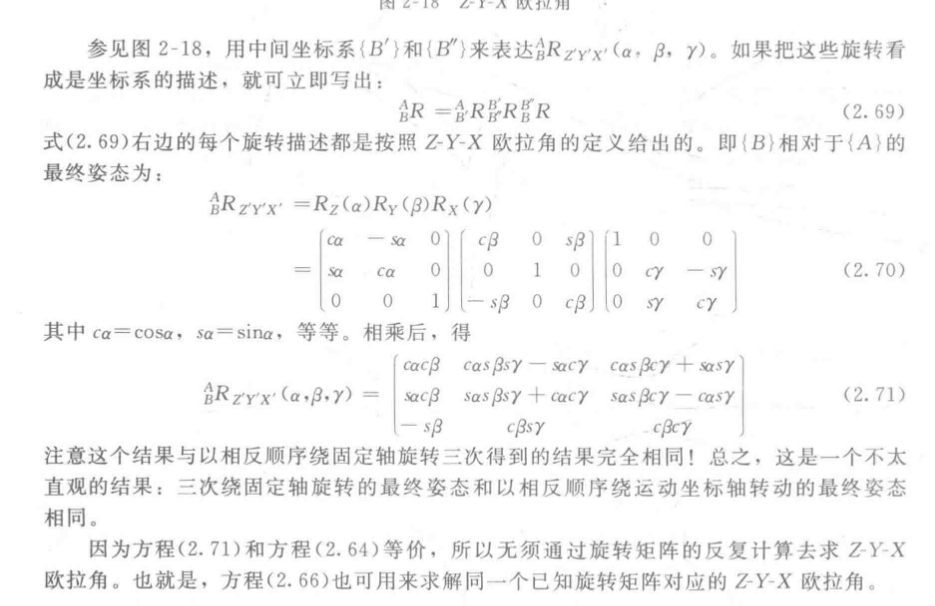 图 2-18 Z-Y-X 欧拉角
参见图 2-18，用中间坐标系{B′}和{B″}来表达$^A_BR_{Z'Y'X'}$(α，β，γ)。如果把这些旋转看
成是坐标系的描述，就可立即写出：
$^A_BR = ^A_{B'}R ^{B'}_{B''}R ^{B''}_BR$ (2.69)
式(2.69)右边的每个旋转描述都是按照 Z-Y-X 欧拉角的定义给出的。即{B}相对于{A}的
最终姿态为：
$^A_BR_{Z'Y'X'} = R_Z(α)R_Y(β)R_X(γ)$
$= \begin{bmatrix} cα & -sα & 0 \\ sα & cα & 0 \\ 0 & 0 & 1 \end{bmatrix} \begin{bmatrix} cβ & 0 & sβ \\ 0 & 1 & 0 \\ -sβ & 0 & cβ \end{bmatrix} \begin{bmatrix} 1 & 0 & 0 \\ 0 & cγ & -sγ \\ 0 & sγ & cγ \end{bmatrix}$ (2.70)
其中 cα=cosα，sα=sinα，等等。相乘后，得
$^A_BR_{Z'Y'X'}(α,β,γ) = \begin{bmatrix} cαcβ & cαsβsγ-sαcγ & cαsβcγ+sαsγ \\ sαcβ & sαsβsγ+cαcγ & sαsβcγ-cαsγ \\ -sβ & cβsγ & cβcγ \end{bmatrix}$ (2.71)
注意这个结果与以相反顺序绕固定轴旋转三次得到的结果完全相同！总之，这是一个不太
直观的结果：三次绕固定轴旋转的最终姿态和以相反顺序绕运动坐标轴转动的最终姿态
相同。
因为方程(2.71)和方程(2.64)等价，所以无须通过旋转矩阵的反复计算去求 Z-Y-X
欧拉角。也就是，方程(2.66)也可用来求解同一个已知旋转矩阵对应的 Z-Y-X 欧拉角。